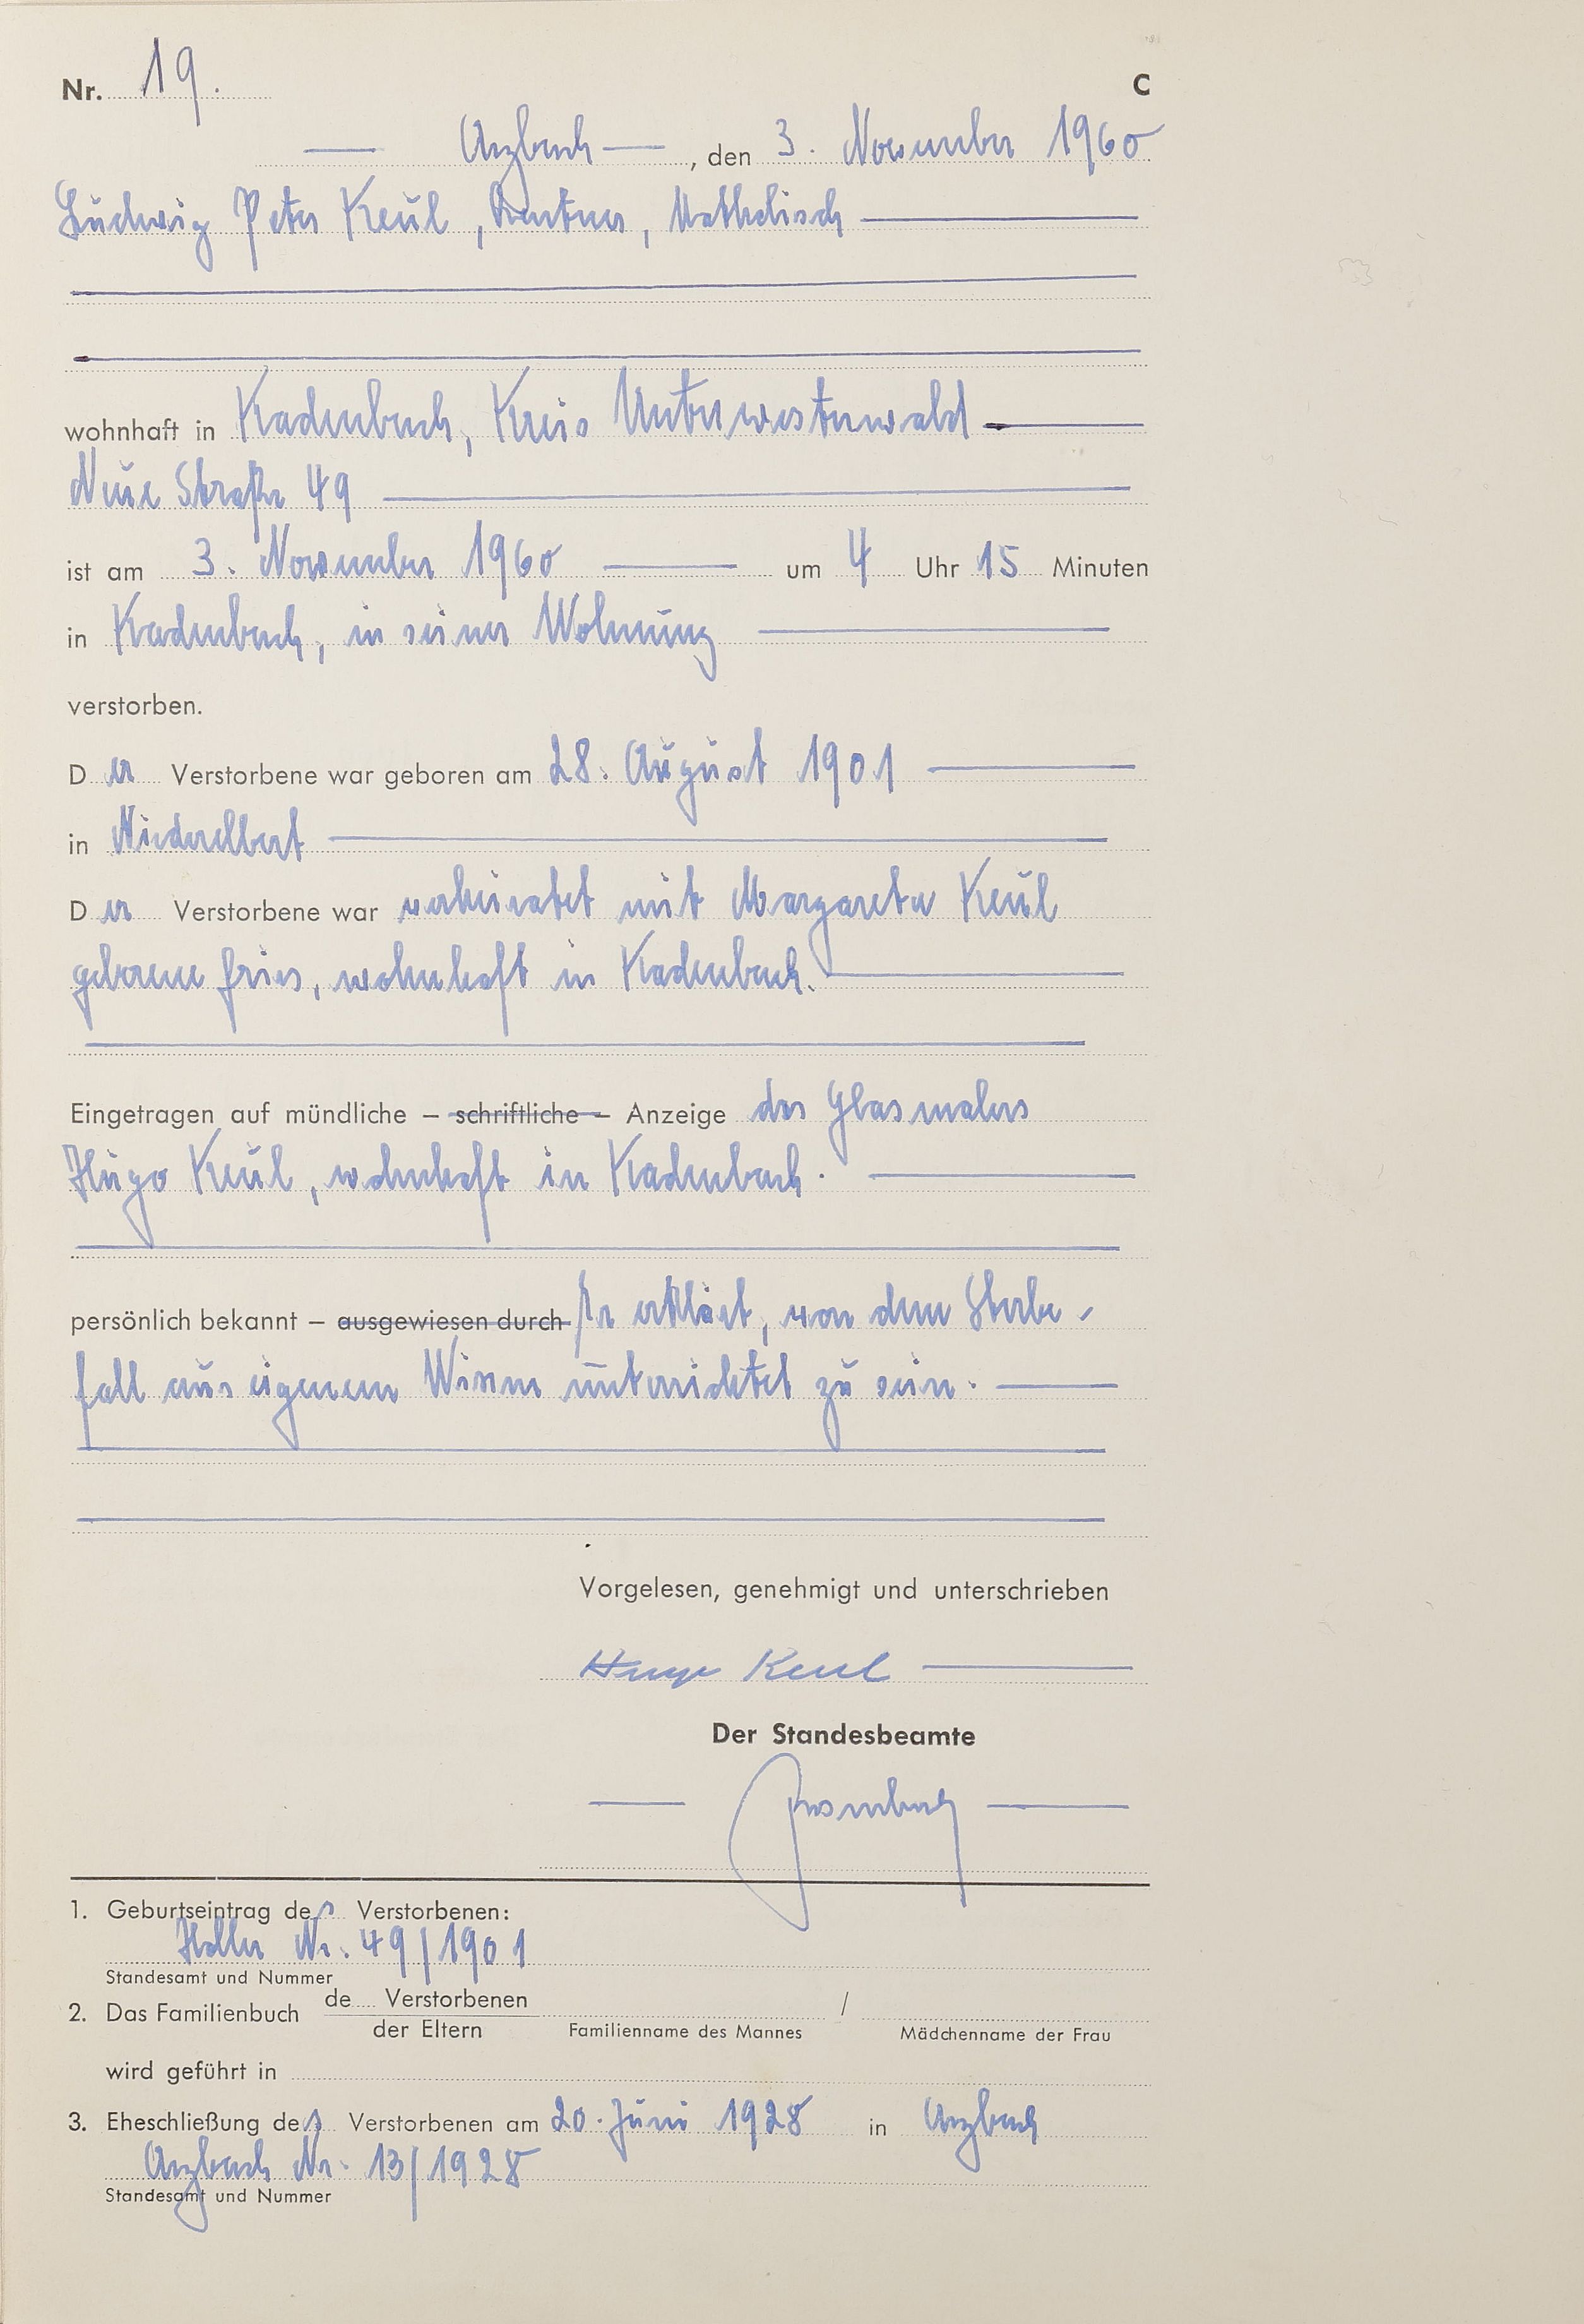 Nr. 19. C
— Arzbach —, den 3. November 1960
Ludwig Peter Keul, Rentner, katholisch
wohnhaft in Kadenbach, Kreis Unterwesterwald
Neue Straße 49
ist am 3. November 1960 um 4 Uhr 15 Minuten
in Kadenbach, in seiner Wohnung
verstorben.
D er Verstorbene war geboren am 28. August 1901
in Niederelbert
D er Verstorbene war verheiratet mit Margareta Keul
geborene Fries, wohnhaft in Kadenbach.
Eingetragen auf mündliche – schriftliche – Anzeige des Glasmalers
Hugo Keul, wohnhaft in Kadenbach.
persönlich bekannt – ausgewiesen durch Er erklärt, von dem Sterbe-
fall aus eigenem Wissen unterrichtet zu sein.
Vorgelesen, genehmigt und unterschrieben
Hugo Keul
Der Standesbeamte
1. Geburtseintrag des Verstorbenen:
Holler Nr. 49/1901
Standesamt und Nummer
2. Das Familienbuch de Verstorbenen /
der Eltern Familienname des Mannes Mädchenname der Frau
wird geführt in
3. Eheschließung des Verstorbenen am 20. Juni 1928 in Arzbach
Arzbach Nr. 13/1928
Standesamt und Nummer